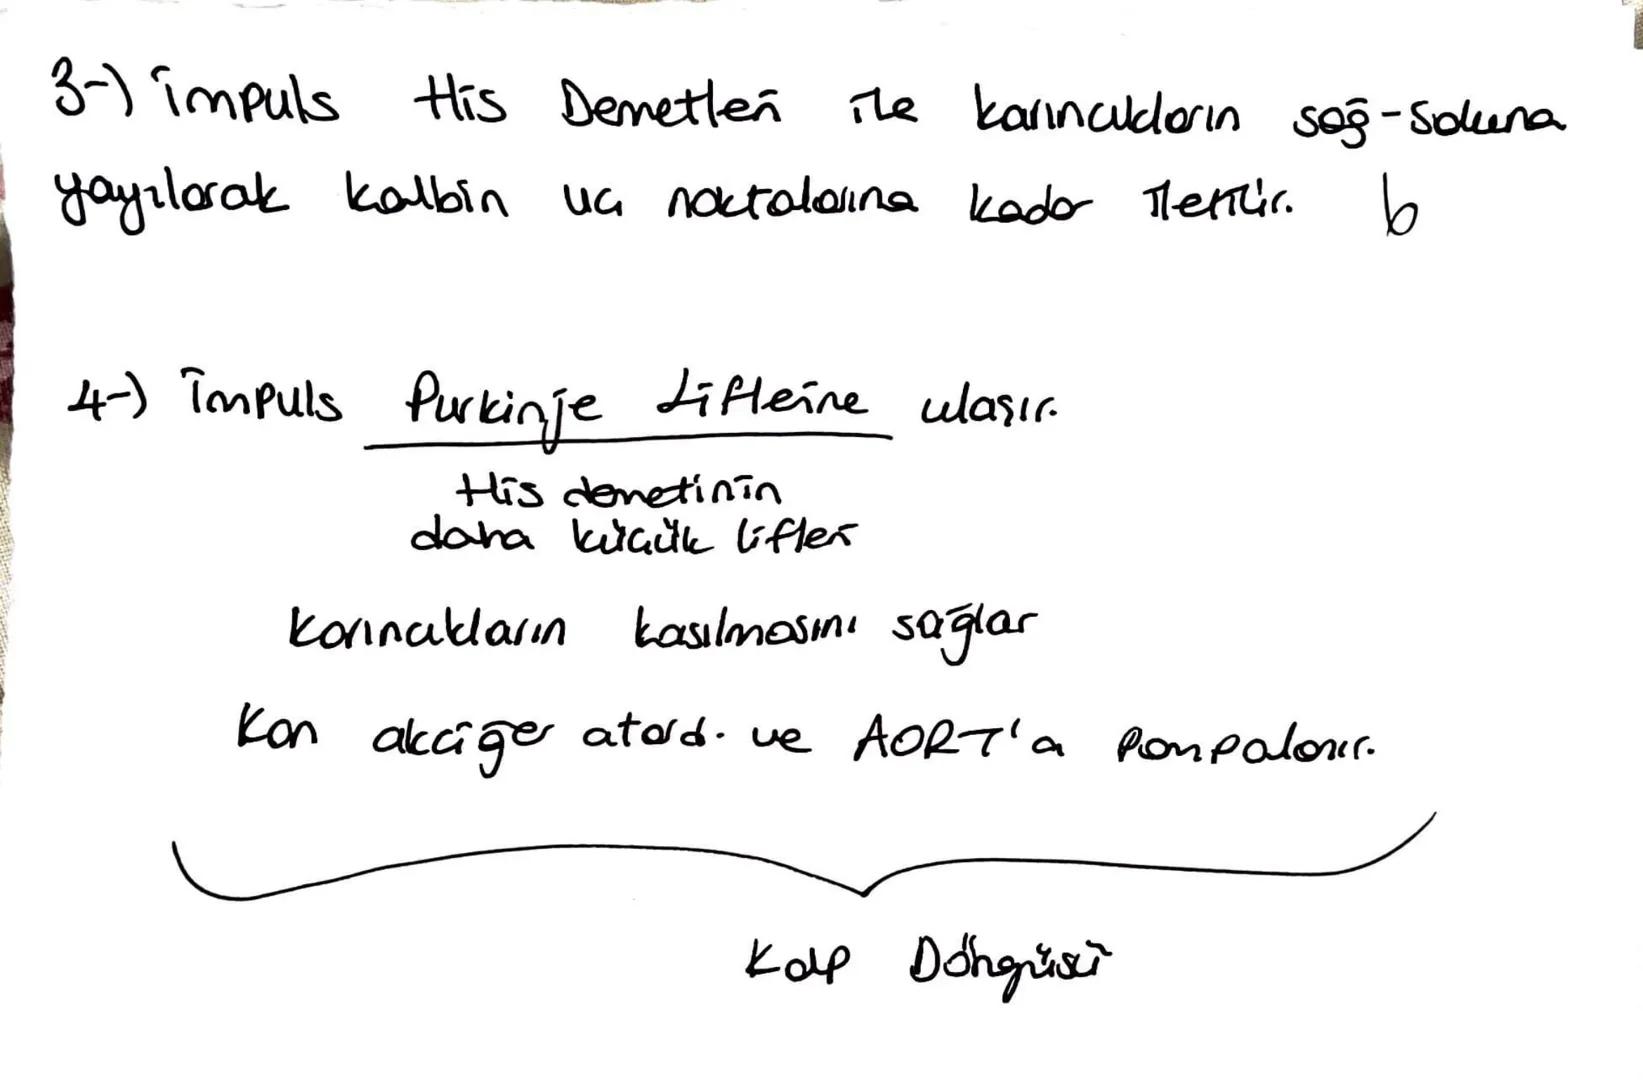 3-) İmpuls His Demetleri ile karıncıkların sağ-soluna
yayılarak kalbin uç noktalarına kadar iletilir. b
4-) İmpuls Purkinje Liflerine ulaşır.
His demetinin
daha küçük lifleri
Karıncıkların kasılmasını sağlar
Kan akciğer atard. ve AORT'a pompalanır.
Kalp Döngüsü